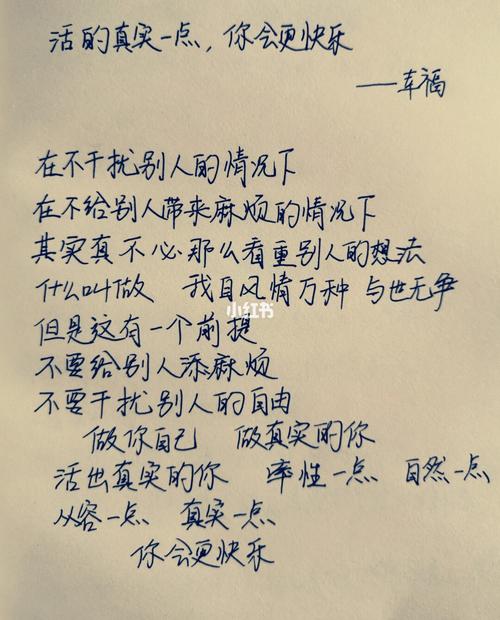 活的真实一点，你会更快乐
——幸福
在不干扰别人的情况下
在不给别人带来麻烦的情况下
其实真不必那么看重别人的想法
什么叫做 我自风情万种 与世无争
小红书
但是这有一个前提
不要给别人添麻烦
不要干扰别人的自由
做你自己 做真实的你
活出真实的你 率性一点 自然一点
从容一点 真实一点
你会更快乐